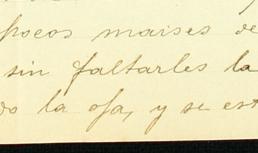 pocos maises de
sin faltarles la
do la oja, y se est